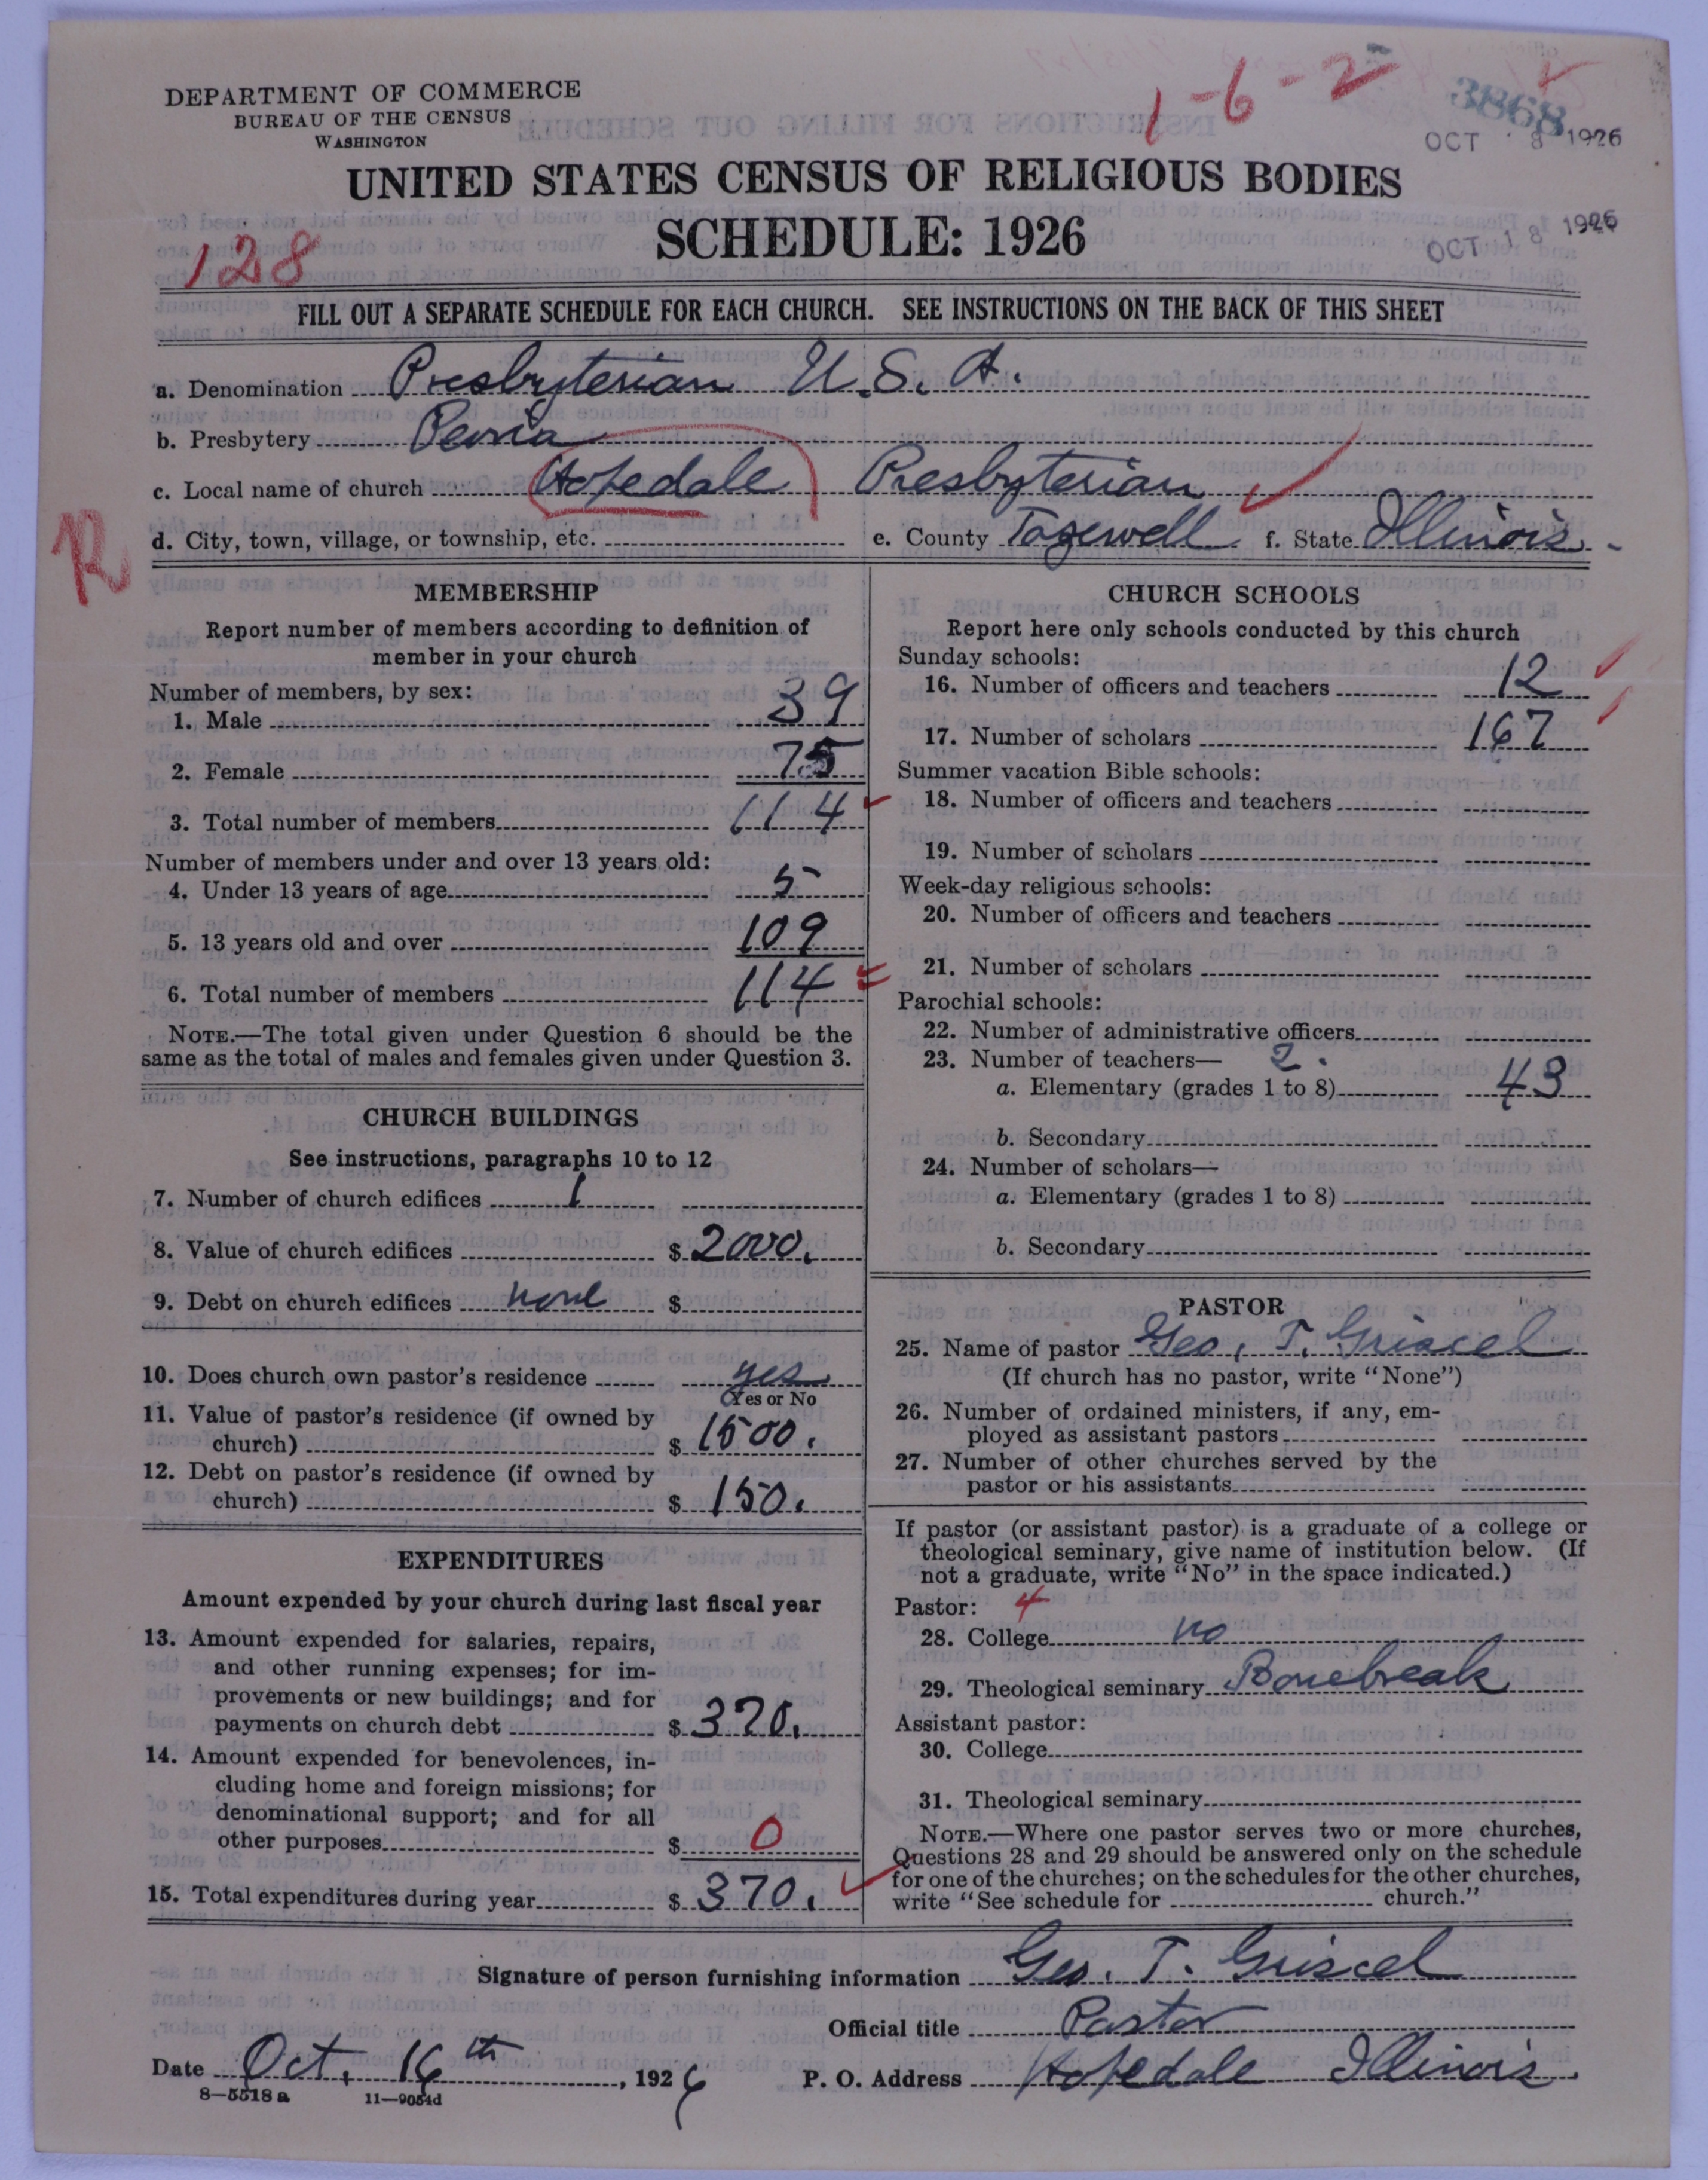 DEPARTMENT OF COMMERCE
BUREAU OF THE CENSUS
WASHINGTON
1-6-2
3868
OCT 8 1926
UNITED STATES CENSUS OF RELIGIOUS BODIES
SCHEDULE: 1926
OCT 18 1926
128
FILL OUT A SEPARATE SCHEDULE FOR EACH CHURCH. SEE INSTRUCTIONS ON THE BACK OF THIS SHEET
a. Denomination Presbyterian U.S.A.
b. Presbytery Peoria
c. Local name of church Hopedale Presbyterian
R
d. City, town, village, or township, etc. e. County Tazewell f. State Illinois.
MEMBERSHIP
Report number of members according to definition of
member in your church
Number of members, by sex:
1. Male 39
2. Female 75
3. Total number of members 114
Number of members under and over 13 years old:
4. Under 13 years of age 5
5. 13 years old and over 109
6. Total number of members 114
NOTE.—The total given under Question 6 should be the
same as the total of males and females given under Question 3.
CHURCH BUILDINGS
See instructions, paragraphs 10 to 12
7. Number of church edifices 1
8. Value of church edifices $ 2000.
9. Debt on church edifices none $
10. Does church own pastor's residence yes
Yes or No
11. Value of pastor's residence (if owned by
church) $ 1500.
12. Debt on pastor's residence (if owned by
church) $ 150.
EXPENDITURES
Amount expended by your church during last fiscal year
13. Amount expended for salaries, repairs,
and other running expenses; for im-
provements or new buildings; and for
payments on church debt $ 370.
14. Amount expended for benevolences, in-
cluding home and foreign missions; for
denominational support; and for all
other purposes $ 0
15. Total expenditures during year $ 370.
CHURCH SCHOOLS
Report here only schools conducted by this church
Sunday schools:
16. Number of officers and teachers 12
17. Number of scholars 167
Summer vacation Bible schools:
18. Number of officers and teachers
19. Number of scholars
Week-day religious schools:
20. Number of officers and teachers
21. Number of scholars
Parochial schools:
22. Number of administrative officers
23. Number of teachers— 2.
a. Elementary (grades 1 to 8) 43
b. Secondary
24. Number of scholars—
a. Elementary (grades 1 to 8)
b. Secondary
PASTOR
25. Name of pastor Geo. T. Griscel
(If church has no pastor, write "None")
26. Number of ordained ministers, if any, em-
ployed as assistant pastors
27. Number of other churches served by the
pastor or his assistants
If pastor (or assistant pastor) is a graduate of a college or
theological seminary, give name of institution below. (If
not a graduate, write "No" in the space indicated.)
Pastor: 4
28. College no
29. Theological seminary Bonebreak
Assistant pastor:
30. College
31. Theological seminary
NOTE.—Where one pastor serves two or more churches,
Questions 28 and 29 should be answered only on the schedule
for one of the churches; on the schedules for the other churches,
write "See schedule for church."
Signature of person furnishing information Geo. T. Griscel
Official title Pastor
Date Oct. 16th, 1926 P. O. Address Hopedale Illinois.
8—5518 a 11—9054d